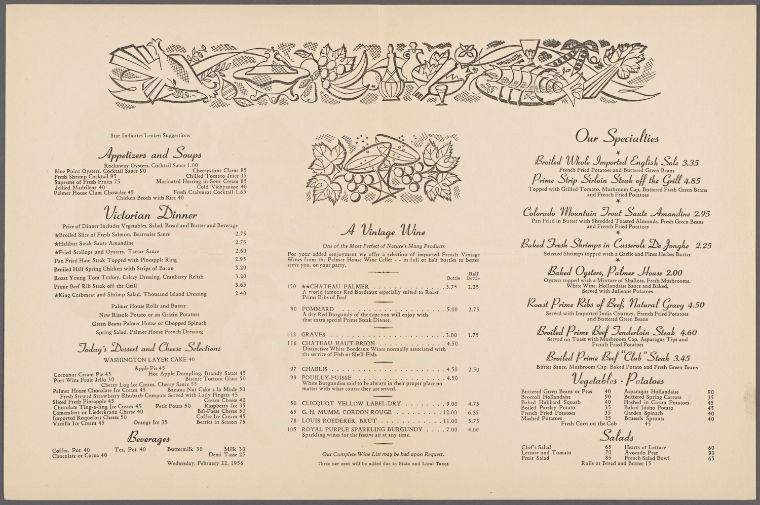 Star Indicates Lenten Suggestions
Appetizers and Soups
Rockaway Oysters, Cocktail Sauce 1.00
Blue Point Oysters, Cocktail Sauce 90 Cherrystone Clams 85
Fresh Shrimp Cocktail 95 Chilled Tomato Juice 35
Supreme of Fresh Fruits 75 Marinated Herring in Sour Cream 85
Jellied Madrilene 40 Cold Vichyssoise 40
Palmer House Clam Chowder 45 Fresh Crabmeat Cocktail 1.65
Chicken Broth with Rice 40
Victorian Dinner
Price of Dinner Includes Vegetables, Salad, Bread and Butter and Beverage
★Broiled Slice of Fresh Salmon, Bearnaise Sauce 2.75
★Halibut Steak Saute Amandine 2.75
★Fried Scallops and Oysters, Tartar Sauce 2.65
Pan Fried Ham Steak Topped with Pineapple Ring 2.95
Broiled Half Spring Chicken with Strips of Bacon 3.20
Roast Young Tom Turkey, Celery Dressing, Cranberry Relish 3.20
Prime Beef Rib Steak off the Grill 3.65
★King Crabmeat and Shrimp Salad, Thousand Island Dressing 2.40
Palmer House Rolls and Butter
New Rissole Potato or au Gratin Potatoes
Green Beans Palmer House or Chopped Spinach
Spring Salad, Palmer House French Dressing
Today's Dessert and Cheese Selections
WASHINGTON LAYER CAKE 40
Apple Pie 45
Cocoanut Cream Pie 45 Hot Apple Dumpling, Brandy Sauce 45
Port Wine Fruit Jello 30 Biscuit Tortoni Glace 50
Cherry Log Ice Cream, Cherry Sauce 55
Palmer House Chocolate Ice Cream 45 Banana Nut Cake a la Mode 50
Fresh Stewed Strawberry Rhubarb Compote Served with Lady Fingers 45
Sliced Fresh Pineapple 45 Cream Cheese 40
Chocolate Ting-a-ling Ice Cream 45 Petit Fours 50 Raspberry Ice 35
Camembert or Liederkranz Cheese 40 Bel-Paese Cheese 50
Imported Roquefort Cheese 50 Coffee Ice Cream 45
Vanilla Ice Cream 45 Orange Ice 35 Berries in Season 75
Beverages
Coffee, Pot 40 Tea, Pot 40 Buttermilk 30 Milk 30
Chocolate or Cocoa 40 Demi Tasse 25
Wednesday, February 22, 1956
A Vintage Wine
One of the Most Perfect of Nature's Many Products
For your added enjoyment we offer a selection of imported French Vintage
Wines from the Palmer House Wine Cellar . . in full or half bottles to better
serve you, or your party.
Bottle Half Bottle
150 ★★CHATEAU PALMER 3.75 2.25
A world famous Red Bordeaux especially suited to Roast
Prime Ribs of Beef
90 POMMARD 5.00 2.75
A dry Red Burgundy of the type you will enjoy with
that extra special Prime Steak Dinner.
113 GRAVES 3.00 1.75
116 CHATEAU HAUT-BRION 4.50
Distinctive White Bordeaux Wines normally associated with
the service of Fish or Shell-Fish.
97 CHABLIS 4.50 2.50
99 POUILLY-FUISSE 4.50
White Burgundies said to be always in their proper place no
matter with what course they are served.
50 CLICQUOT YELLOW LABEL-DRY 9.00 4.75
65 G. H. MUMM, CORDON ROUGE 12.00 6.25
78 LOUIS ROEDERER, BRUT 11.00 5.75
105 ROYAL PURPLE SPARKLING BURGUNDY 7.00 4.00
Sparkling wines for the festive air at any time.
Our Complete Wine List may be had upon Request.
Three per cent will be added due to State and Local Taxes
Our Specialties
★
Broiled Whole Imported English Sole 3.35
French Fried Potatoes and Buttered Green Beans
Prime Strip Sirloin Steak off the Grill 4.85
Topped with Grilled Tomato, Mushroom Cap, Buttered Fresh Green Beans
and French Fried Potatoes
★
Colorado Mountain Trout Saute Amandine 2.95
Pan Fried in Butter with Shredded Toasted Almonds, Fresh Green Beans
and French Fried Potatoes
★
Baked Fresh Shrimps in Casserole De Jonghe 2.25
Selected Shrimps topped with a Garlic and Fines Herbes Butter
★
Baked Oysters, Palmer House 2.00
Oysters topped with a Mixture of Shallots, Fresh Mushrooms,
White Wine, Hollandaise Sauce and Baked,
Served with Julienne Potatoes
Roast Prime Ribs of Beef, Natural Gravy 4.50
Served with Imported India Chutney, French Fried Potatoes
and Buttered Green Beans
Broiled Prime Beef Tenderloin Steak 4.60
Served on Toast with Mushroom Cap, Asparagus Tips and
French Fried Potatoes
Broiled Prime Beef "Club" Steak 3.45
Butter Sauce, Mushroom Cap, Baked Potato and Fresh Green Beans
Vegetables - Potatoes
Buttered Green Beans or Peas 40 Asparagus Hollandaise 90
Broccoli Hollandaise 90 Buttered Spring Carrots 35
Baked Hubbard Squash 40 Hashed in Cream Potatoes 45
Boiled Parsley Potato 35 Baked Idaho Potato 45
French Fried Potatoes 35 Garden Spinach 40
Mashed Potatoes 35 Brussels Sprouts 40
Fresh Corn on the Cob 45
Salads
Chef's Salad 65 Hearts of Lettuce 60
Lettuce and Tomato 70 Avocado Pear 90
Fruit Salad 85 French Salad Bowl 65
Rolls or Bread and Butter 15